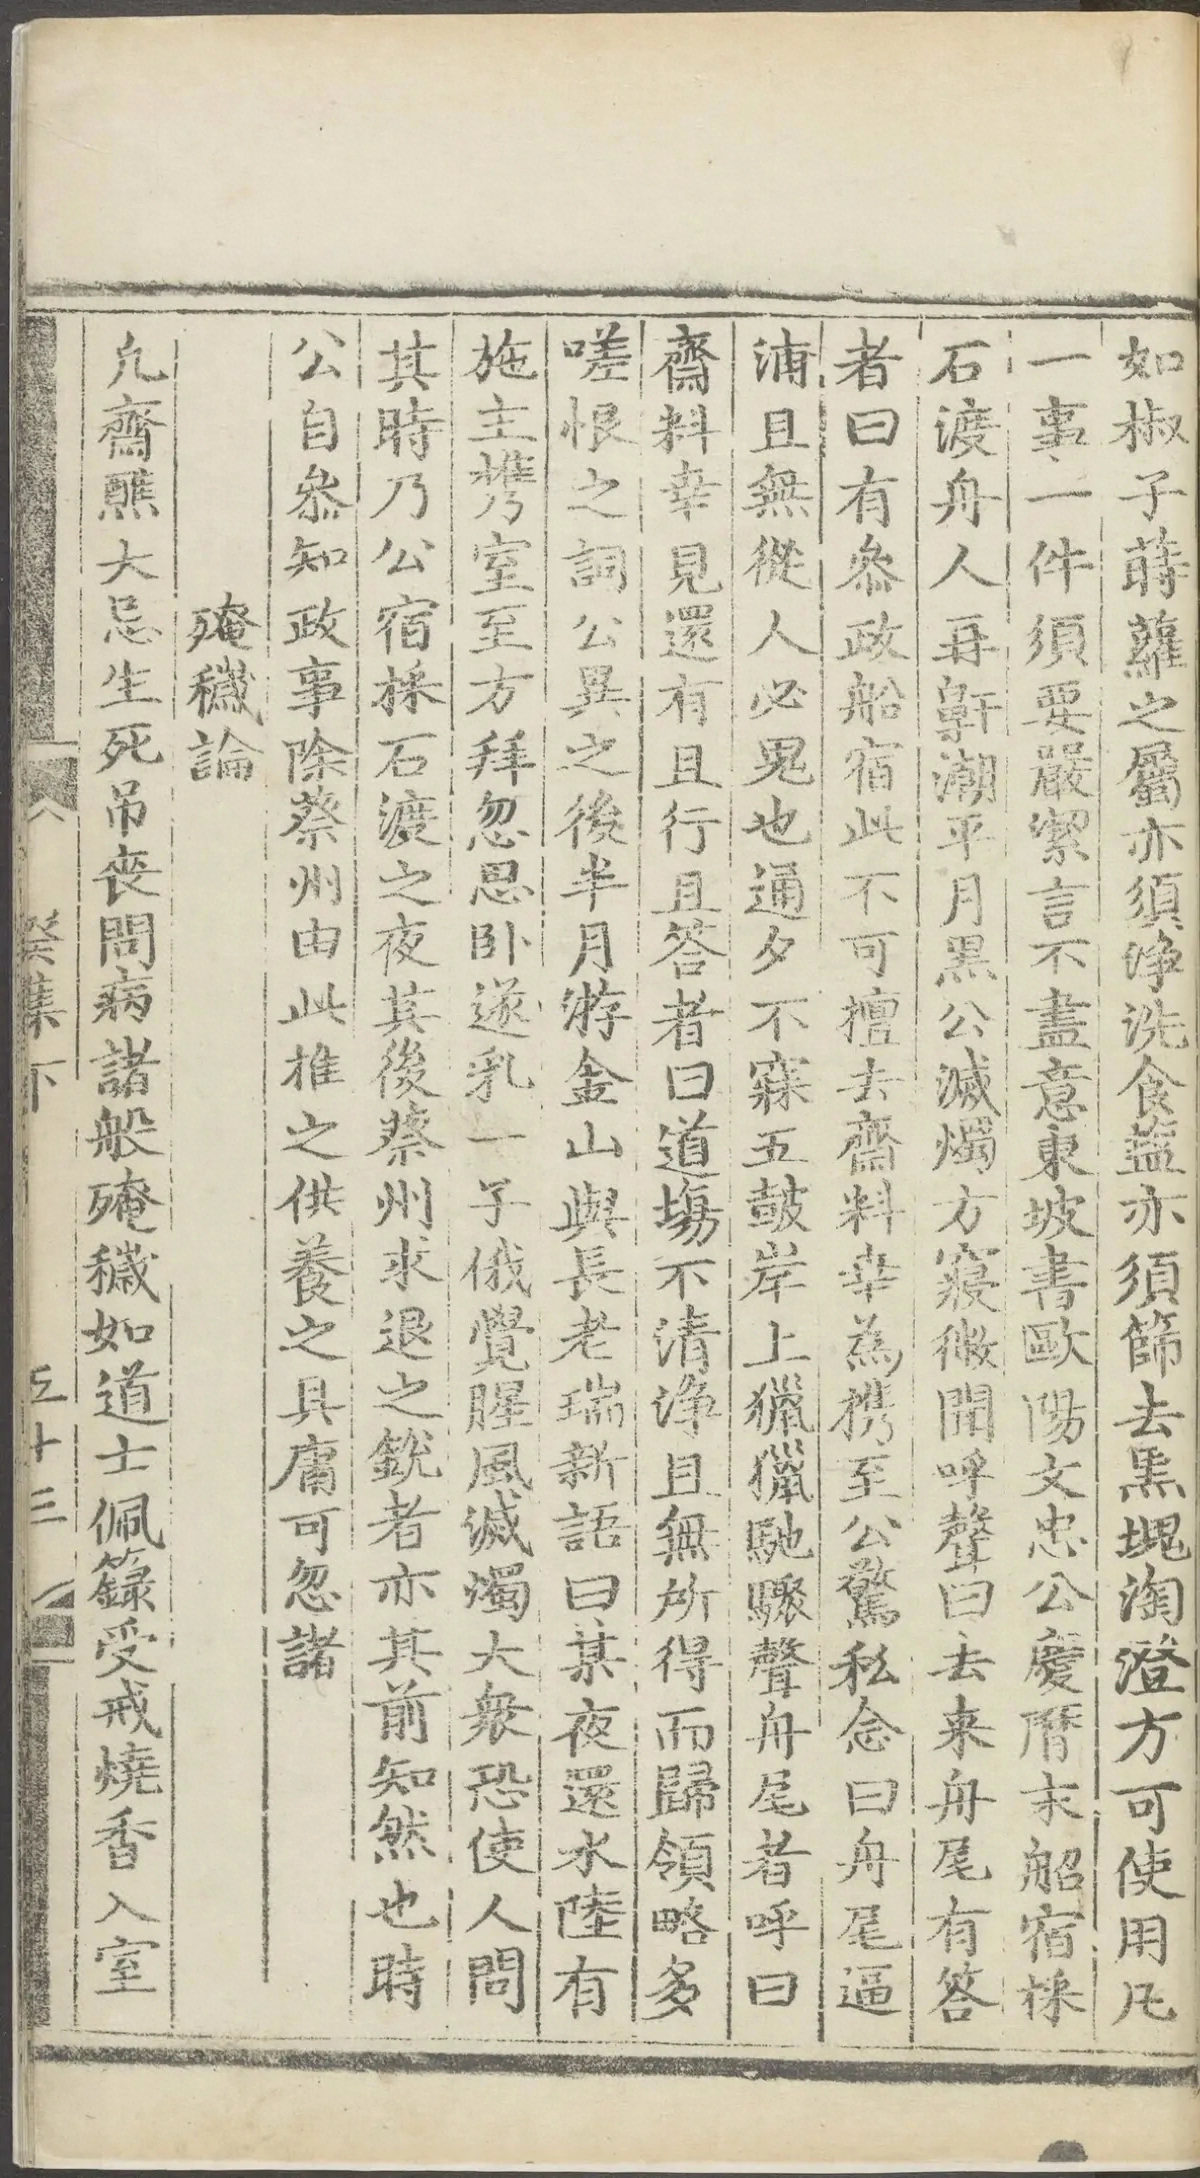 如椒子蒔蘿之屬亦須浄洗食塩亦須篩去黒塊淘澄方可使用凡
一事一件須要嚴潔言不盡意東坡書歐陽文忠公慶曆末船宿採
石渡舟人再鼾潮平月黒公滅燭方寢微聞呼聲曰去来舟尾有答
者曰有叅政船宿此不可擅去齋料幸為携至公驚私念曰舟尾逼
浦且無從人必鬼也通夕不寐五鼓岸上獵獵馳驟聲舟尾者呼曰
齋料幸見還有且行且答者曰道塲不清浄且無所得而歸領略多
嗟恨之詞公異之後半月游金山與長老瑞新語曰某夜還水陸有
施主携室至方拜忽思卧遂乳一子俄覺腥風滅燭大衆恐使人問
其時乃公宿採石渡之夜其後蔡州求退之銳者亦其前知然也時
公自叅知政事除蔡州由此推之供養之具庸可忽諸
殗穢論
凡齋醮大忌生死吊丧問病諸般殗穢如道士佩籙受戒燒香入室
癸集下 五十三